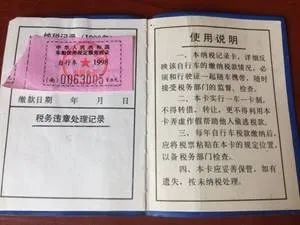 纳税记录(1998年
中华人民共和国
车船使用税定额完税证
自行车 1998
缴款日期 年 月 日
税务违章处理记录
使用说明
一、本纳税记录卡,详细反
映该自行车的缴纳税款情况,必
须和行驶证一起随车携带,随时
接受税务部门的监督、检查。
二、本卡实行一车一卡制,
不得转借、转让,更不得利用本
卡弄虚作假帮助他人偷逃税款。
三、每年自行车税款缴纳后,
应将税票粘贴在本卡的规定位置,
以备税务部门检查。
四、本卡应妥善保管,如有
遗失,按未纳税处理。